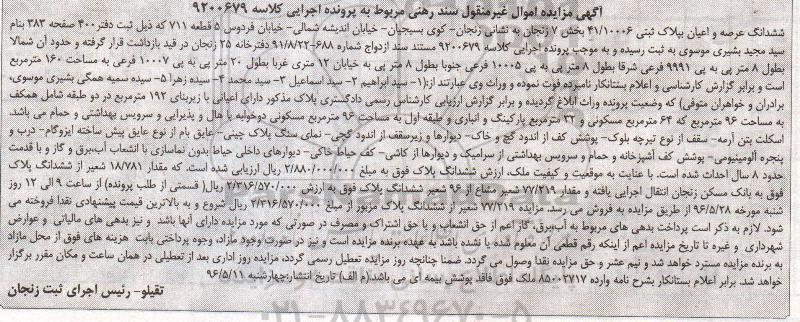 آگهی مزایده اموال غیرمنقول سند رهنی مربوط به پرونده اجرایی کلاسه ۹۲۰۰۶۷۹
ششدانگ عرصه و اعیان پلاک ثبتی ۴۱/۱۰۰۰۶ بخش ۷ زنجان به نشانی زنجان- کوی بسیجیان- خیابان اندیشه شمالی- خیابان فردوس ۵ قطعه ۷۱۱ که ذیل ثبت دفتر۴۰۰ صفحه ۳۸۳ بنام
سید مجید بشیری موسوی به ثبت رسیده و به موجب پرونده اجرایی کلاسه ۹۲۰۰۶۷۹ مستند سند ازدواج شماره ۶۸۸-۹۱/۸/۲۲ دفترخانه ۲۵ زنجان در قید بازداشت قرار گرفته و حدود آن شمالا
بطول ۸ متر پی به پی ۹۹۹۱ فرعی شرقا بطول ۸ متر پی به پی ۱۰۰۰۵ فرعی جنوبا بطول ۸ متر پی به خیابان ۱۲ متری غربا بطول ۲۰ متر پی به پی ۱۰۰۰۷ فرعی به مساحت ۱۶۰ مترمربع
است و برابر گزارش کارشناسی و اعلام بستانکار نامبرده فوت نموده و وراث وی عبارتند از:(۱- سید ابراهیم ۲- سید اسماعیل ۳- سید محمد ۴- سیده زهرا ۵- سیده سمیه همگی بشیری موسوی،
برادران و خواهران متوفی) که وضعیت پرونده وراث ابلاغ گردیده و برابر گزارش ارزیابی کارشناس رسمی دادگستری پلاک مذکور دارای اعیانی با زیربنای ۱۹۲ مترمربع در دو طبقه شامل همکف
به مساحت ۹۶ مترمربع که ۶۴ مترمربع مسکونی و ۳۲ مترمربع پارکینگ و انباری و طبقه اول به مساحت ۹۶ مترمربع مسکونی دوخوابه با هال و پذیرایی و سرویس بهداشتی و حمام می باشد.
اسکلت بتن آرمه- سقف از نوع تیرچه بلوک- پوشش کف از اندود گچ و خاک- دیوارها و زیرسقف از اندود گچی- نمای سنگ پلاک چینی- عایق بام از نوع عایق پیش ساخته ایزوگام- درب و
پنجره آلومینیومی- پوشش کف آشپزخانه و حمام و سرویس بهداشتی از سرامیک و دیوارها از کاشی- کف حیاط خاکی- دیوارهای داخلی حیاط بدون نماسازی با انشعاب آب،برق و گاز و با قدمت
حدود ۸ سال احداث شده است. با عنایت به موقعیت و کیفیت ملک، ارزش ششدانگ پلاک فوق به مبلغ ۲/۸۸۰/۰۰۰/۰۰۰ ریال ارزیابی شده است. که مقدار ۱۸/۷۸۱ شعیر از ششدانگ پلاک
فوق به بانک مسکن زنجان انتقال اجرایی یافته و مقدار ۷۷/۲۱۹ شعیر مشاع از ۹۶ شعیر ششدانگ پلاک فوق به ارزش ۲/۳۱۶/۵۷۰/۰۰۰ ریال( قسمتی از طلب پرونده) از ساعت ۹ الی ۱۲ روز
شنبه مورخه ۹۶/۵/۲۸ از طریق مزایده به فروش می رسد. مزایده ۷۷/۲۱۹ شعیر از ششدانگ پلاک مزبور از مبلغ ۲/۳۱۶/۵۷۰/۰۰۰ ریال شروع و به بالاترین قیمت پیشنهادی نقدا فروخته می
شود. لازم به ذکر است پرداخت بدهی های مربوط به آب،برق، گاز اعم از حق انشعاب و یا حق اشتراک و مصرف در صورتی که مورد مزایده دارای آنها باشد و نیز بدهی های مالیاتی و عوارض
شهرداری و غیره تا تاریخ مزایده اعم از اینکه رقم قطعی آن معلوم شده یا نشده باشد به عهده برنده مزایده است و نیز در صورت وجود مازاد، وجوه پرداختی بابت هزینه های فوق از محل مازاد
به برنده مزایده مسترد خواهد شد و نیم عشر و حق مزایده نقدا وصول می گردد. ضمنا چنانچه روز مزایده تعطیل رسمی گردد، مزایده روز اداری بعد از تعطیلی در همان ساعت و مکان مقرر برگزار
خواهد شد. برابر اعلام بستانکار بشرح نامه وارده ۸۵۰۰۳۷۱۷ ملک فوق فاقد پوشش بیمه ای می باشد.(م الف) تاریخ انتشار:چهارشنبه ۹۶/۵/۱۱
تقیلو- رئیس اجرای ثبت زنجان
۰۲۱-۸۸۳۴۹۶۷۰-۵